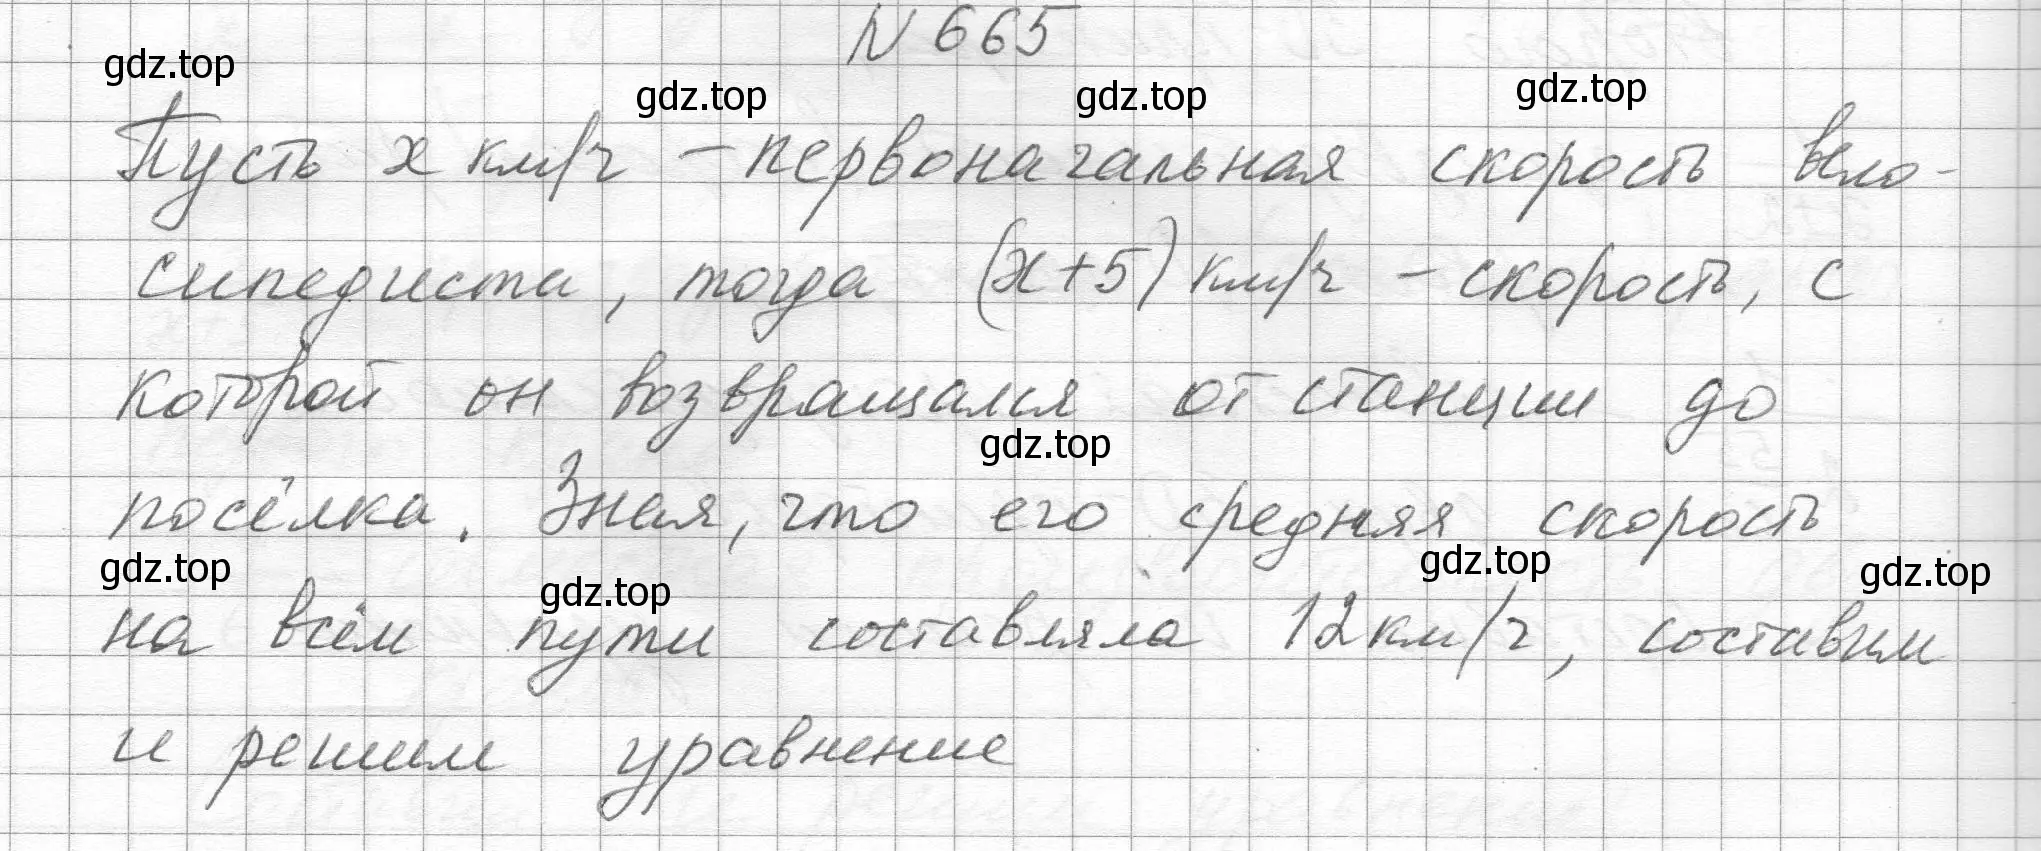 N 665
gdz.top
gdz.top
gdz.top
gdz.top
Пусть x км/ч - первоначальная скорость вело-
сипедиста, тогда (x+5) км/ч - скорость, с
которой он возвращался от станции до
gdz.top
посёлка. Зная, что его средняя скорость
gdz.top
gdz.top
gdz.top
gdz.top
на всём пути составляла 12 км/ч, составим
и решим уравнение